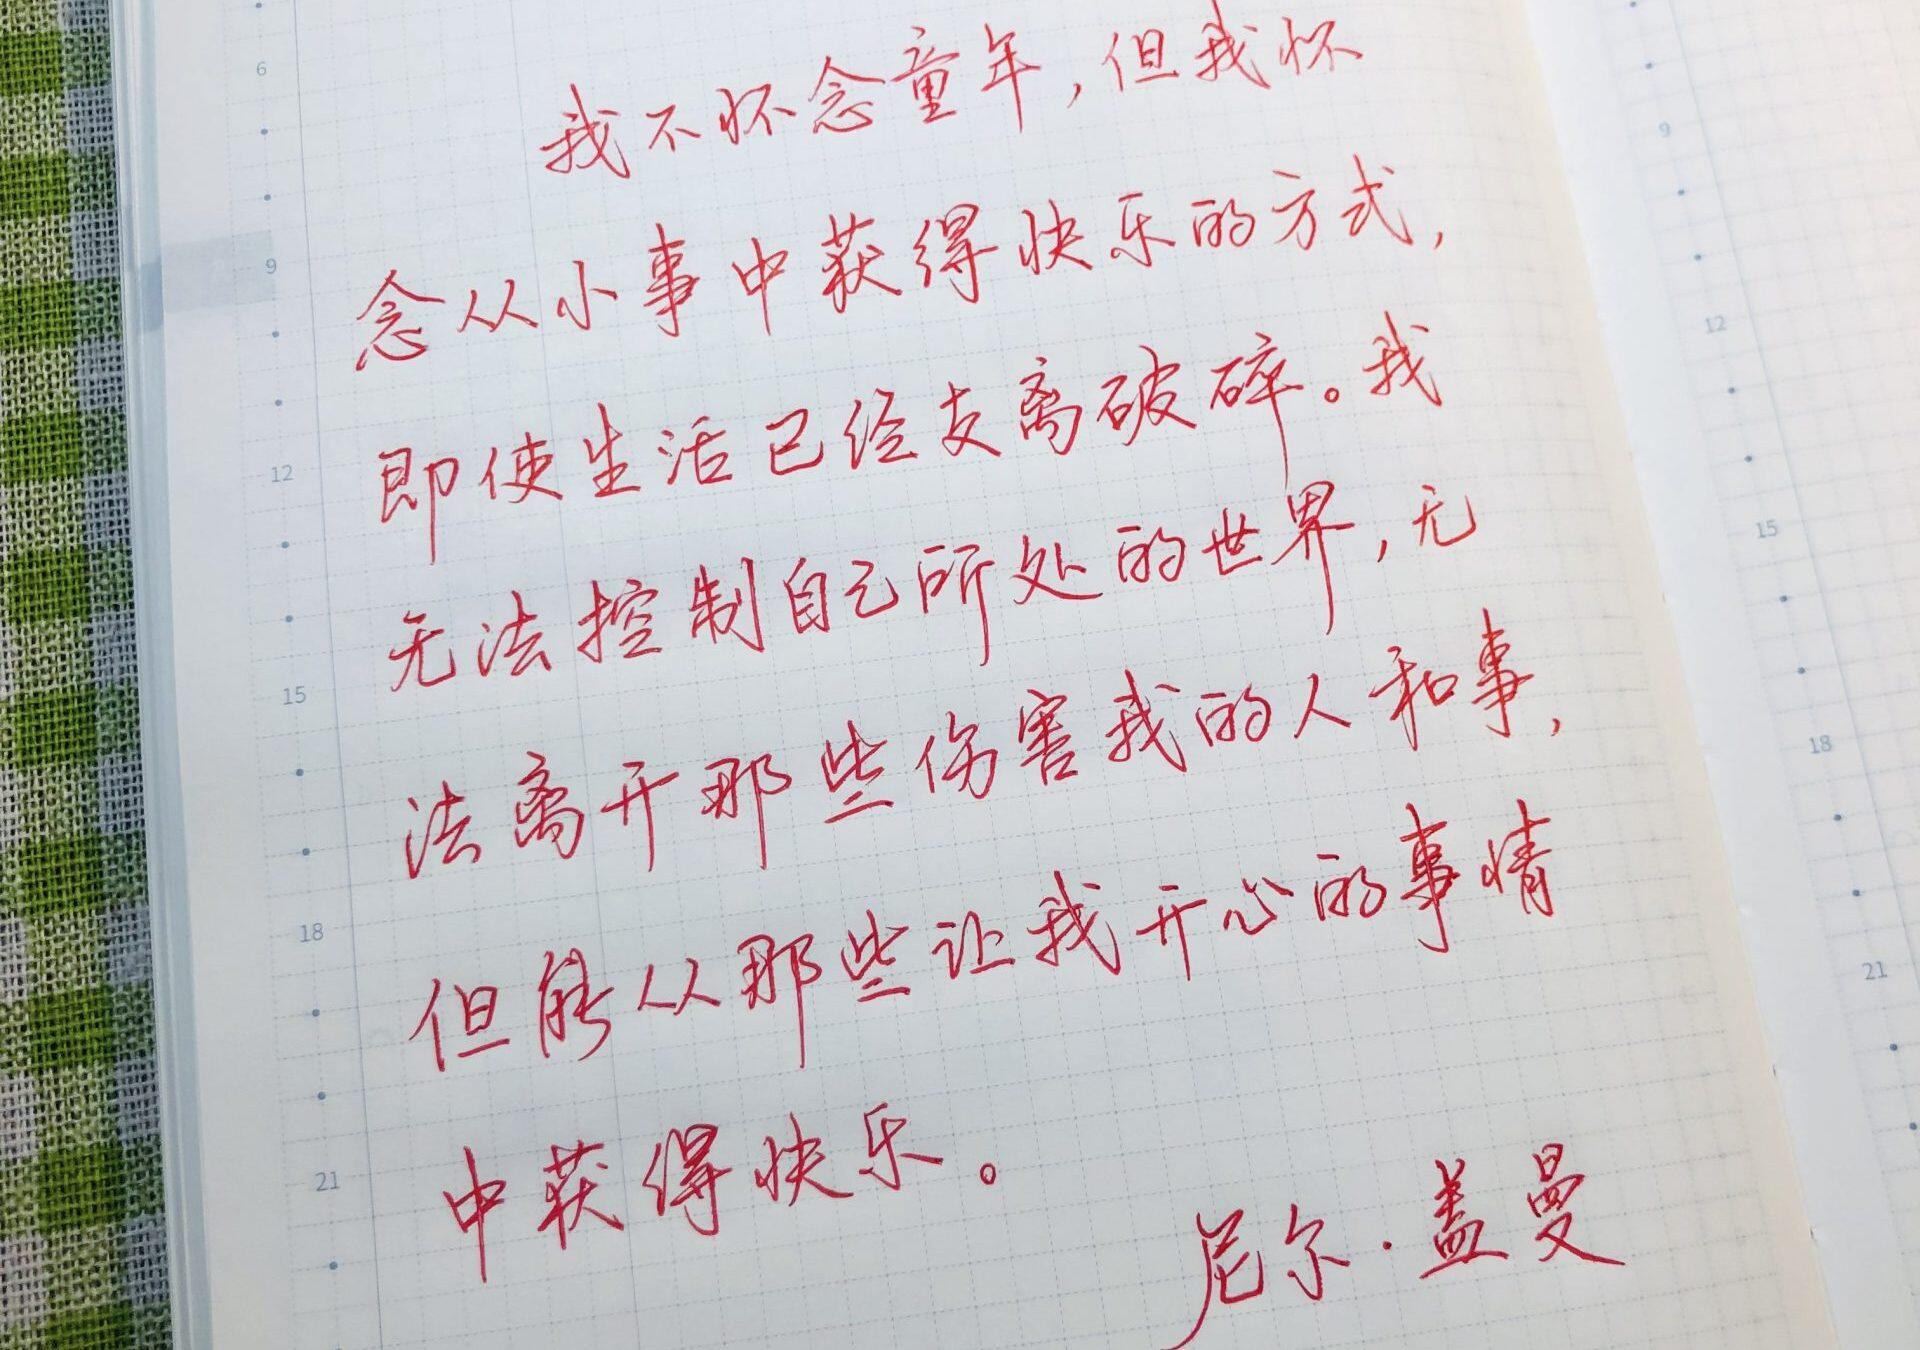 我不怀念童年，但我怀
念从小事中获得快乐的方式，
即使生活已经支离破碎。我
无法控制自己所处的世界，无
法离开那些伤害我的人和事，
但能从那些让我开心的事情
中获得快乐。
尼尔·盖曼
6
9
12
15
18
21
9
12
15
18
21